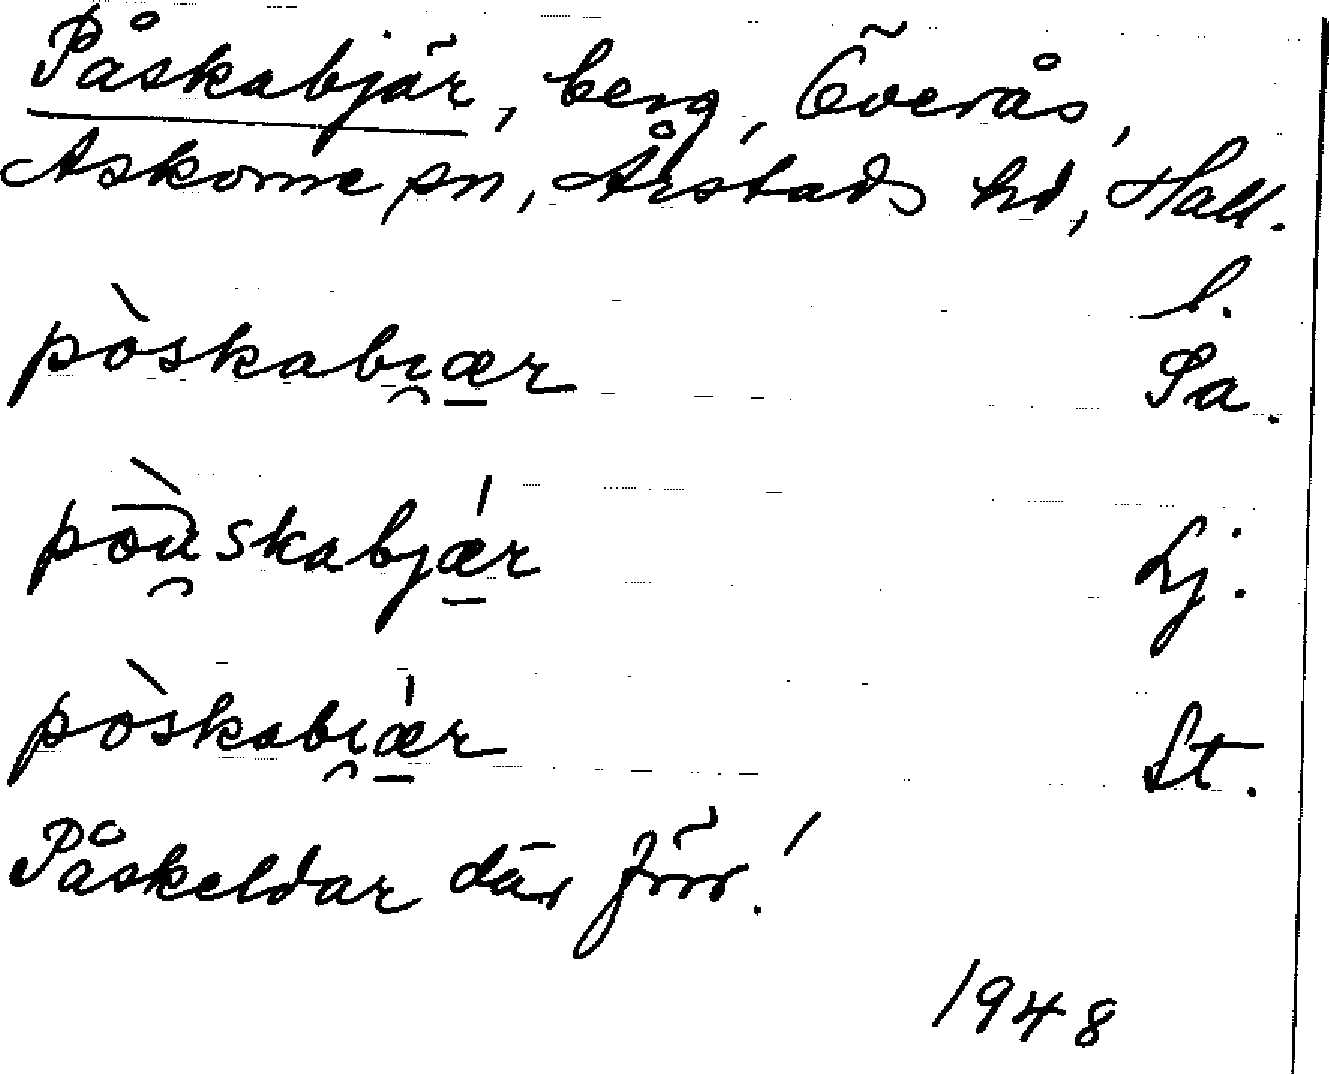 Påskabjär, berg, Överås,
Askome sn, Årstads hd, Hall.
l.
pòskabi̯æ̱r Pa.
pòu̯skabjǽ̱r Lj.
pòskabi̯ǽ̱r St.
Påskeldar där förr!
1948